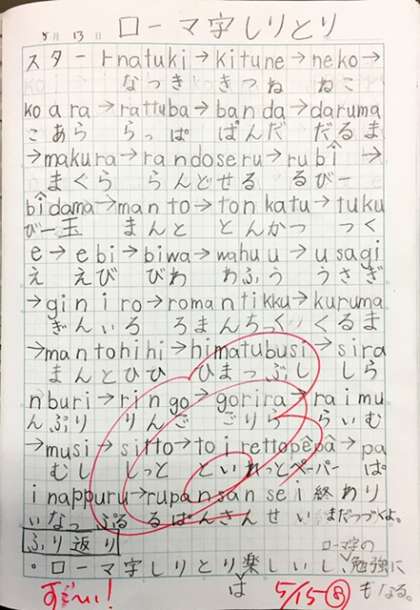 5月 13日 ローマ字しりとり
スタートnatuki→kitune→neko→
なつき きつね ねこ
koara→rattuba→banda→daruma
こあら らっぱ ぱんだ だるま
→makura→randoseru→rubî→
まくら らんどせる るびー
bîdama→manto→tonkatu→tuku
びー玉 まんと とんかつ つく
e→ebi→biwa→wahuu→usagi
え えび びわ わふう うさぎ
→giniro→romantikku→kuruma
ぎんいろ ろまんちっく くるま
→mantohihi→himatubusi→sira
まんとひひ ひまつぶし しら
nburi→ringo→gorira→raimu
んぷり りんご ごりら らいむ
→musi→sitto→toirettopêpâ→pa
むし しっと といれっとペーパー ぱ
inappuru→rupansansei 終わり
いなっぷる るぱんさんせい まだつづくよ。
ふり返り
・ローマ字しりとりは楽しいし、ローマ字の勉強に
もなる。
すご〜い!
5/15 8